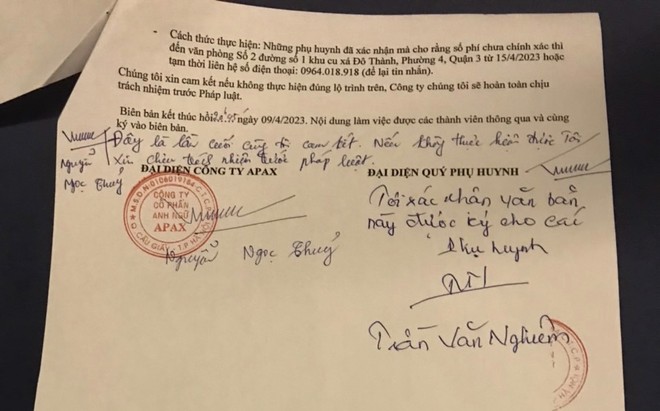 • Cách thức thực hiện: Những phụ huynh đã xác nhận mà cho rằng số phí chưa chính xác thì
đến văn phòng Số 2 đường số 1 khu cư xá Đô Thành, Phường 4, Quận 3 từ 15/4/2023 hoặc
tạm thời liên hệ số điện thoại: 0964.018.918 (để lại tin nhắn).
Chúng tôi xin cam kết nếu không thực hiện đúng lộ trình trên, Công ty chúng tôi sẽ hoàn toàn chịu
trách nhiệm trước Pháp luật.
Biên bản kết thúc hồi ngày 09/4/2023. Nội dung làm việc được các thành viên thông qua và cùng
ký vào biên bản.
Đây là lần cuối cùng tôi cam kết. Nếu không thực hiện được Tôi
xin chịu trách nhiệm trước pháp luật.
Nguyễn
Ngọc Thuỷ
ĐẠI DIỆN CÔNG TY APAX
ĐẠI DIỆN QUÝ PHỤ HUYNH
CÔNG TY
CỔ PHẦN
ANH NGỮ
APAX
Q. CẦU GIẤY - T.P HÀ NỘI
Nguyễn Ngọc Thuỷ
Tôi xác nhận văn bản
này được ký cho các
phụ huynh
Trần Văn Nghiêm